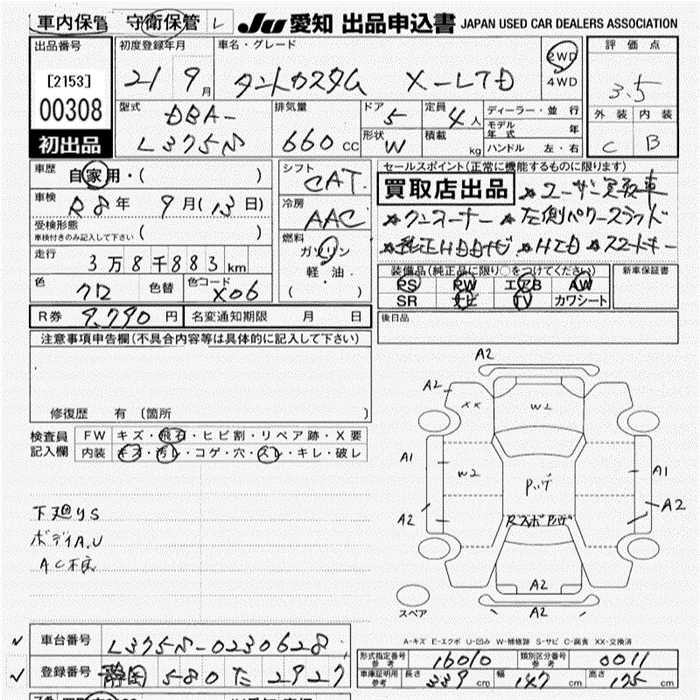 車内保管 守衛保管 レ Ju 愛知 出品申込書 JAPAN USED CAR DEALERS ASSOCIATION
出品番号 初度登録年月 車名・グレード 2WD 評価点
[2153] 21 9月 タントカスタム X-LTD 4WD 3.5
00308 型式 DBA- 排気量 ドア 5 定員 4人 ディーラー・並行 外装 内装
初出品 L375S 660cc 形状 W 積載 kg モデル年式 年 C B
ハンドル 左・右
車歴 自家用・( ) シフト CAT. セールスポイント(正常に機能するものに限ります)
車検 R8年 9月(13日) 冷房 AAC 買取店出品 ★ユーザー買取車
受検形態 ★ワンオーナー ★左側パワースライド
車検付きのみ記入して下さい ( ) 燃料 ガソリン ★純正HDDナビ ★HID ★スマートキー
走行 3万8千883km 軽油・ 装備品(純正品に限り○をつけてください) 新車保証書
色 クロ 色替 色コード X06 ・( ) PS PW エアB AW
SR ナビ TV カワシート
R券 9,790円 名変通知期限 月 日 後日品
注意事項申告欄(不具合内容等は具体的に記入して下さい)
修復歴 有 (箇所 )
検査員 FW キズ・飛石・ヒビ割・リペア跡・X要
記入欄 内装 キズ・汚レ・コゲ・穴・スレ・キレ・破レ
下廻りS
ボデイA,U
AC不良
A2
A2 XX W2
A1 W2 Pハゲ A1
A2 A2
A2
A2
スペア
A-キズ E-エクボ U-凹み W-補修跡 S-サビ C-腐食 XX-交換済
車台番号 L375S-0230628
登録番号 静岡 580 た 2927
形式指定番号 参考 16010 類別区分番号 参考 0011
車庫証明用 参考 長さ 339cm 幅 147cm 高さ 175cm